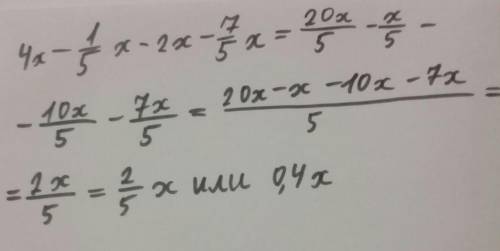 4x - 1/5 x - 2x - 7/5 x = 20x/5 - x/5 -
- 10x/5 - 7x/5 = (20x - x - 10x - 7x)/5 =
= 2x/5 = 2/5 x или 0,4x